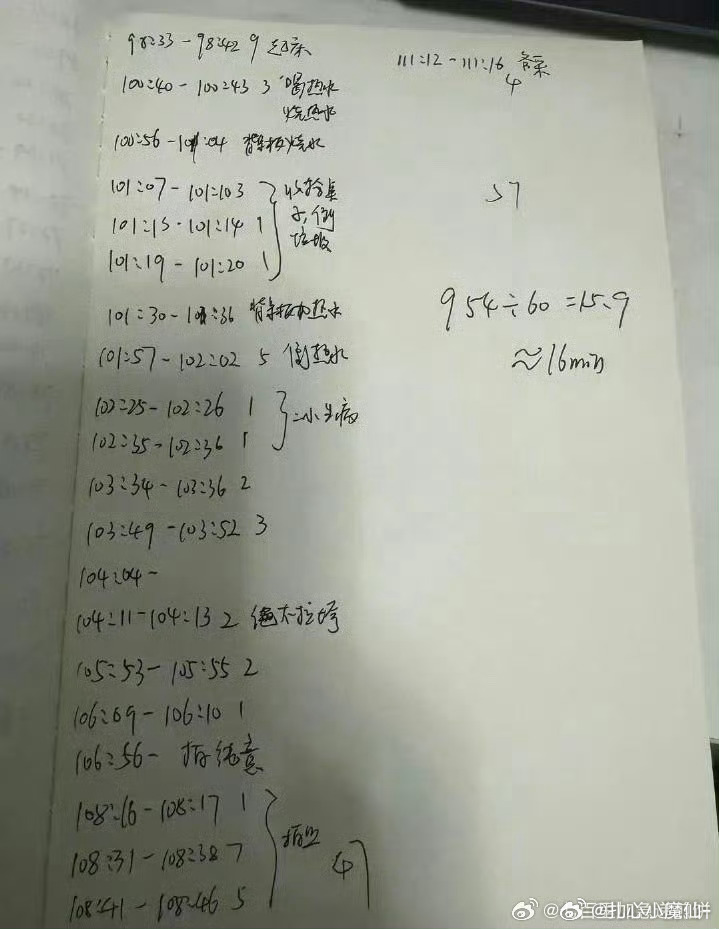 98:33-98:42 9 起床
100:40-100:43 3 喝热水
烧热水
100:56-101:04 背景板烧水
101:07-101:103
101:13-101:14 1
101:19-101:20 1
收拾桌
子,倒
垃圾
101:30-101:36 背景板加热水
101:57-102:02 5 倒热水
102:25-102:26 1
102:35-102:36 1
103:34-103:36 2
103:49-103:52 3
104:04-
104:11-104:13 2
105:53-105:55 2
106:09-106:10 1
106:56-
108:16-108:17 1
108:31-108:38 7
108:41-108:46 5
47
111:12-111:16 备菜
4
57
954÷60=15.9
≈16min